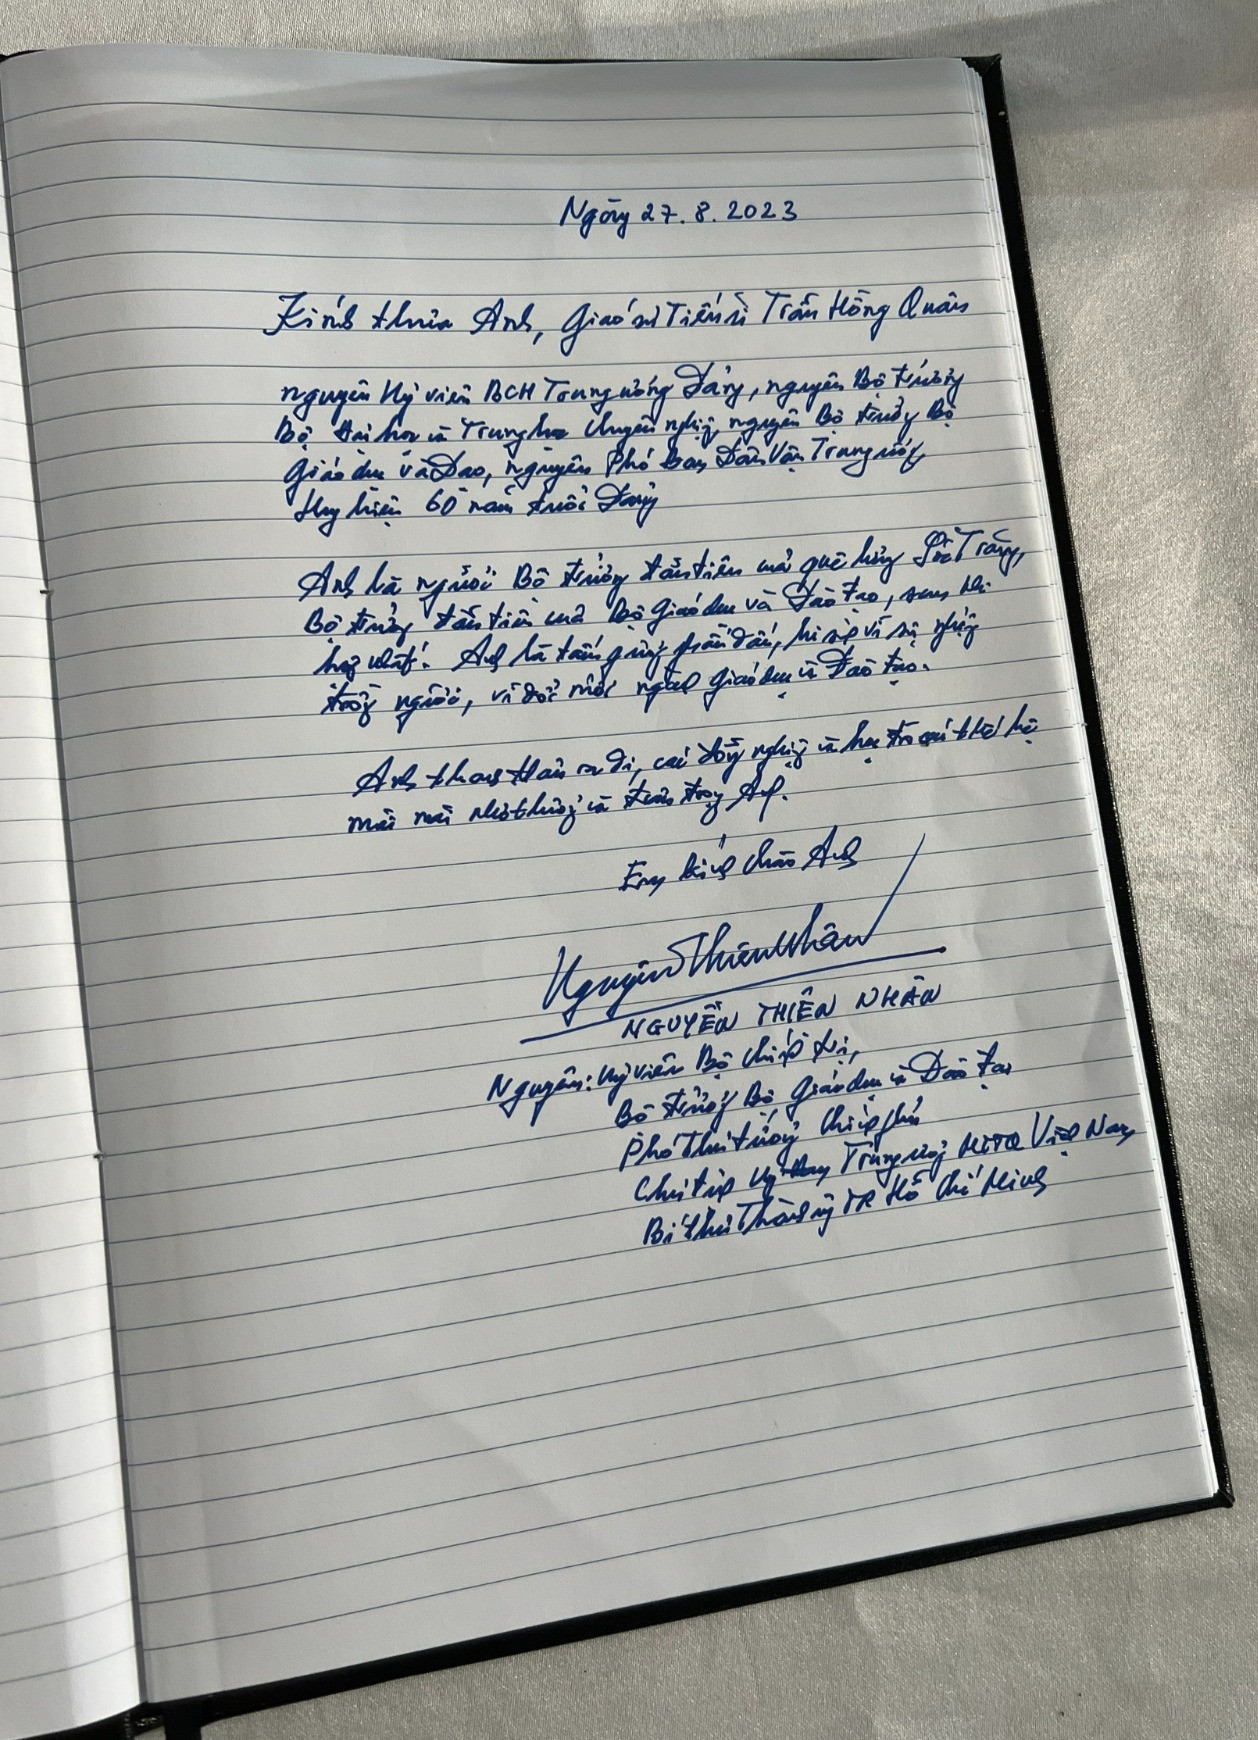 Ngày 27.8.2023
Kính thưa Anh, Giáo sư Tiến sĩ Trần Hồng Quân
nguyên Uỷ viên BCH Trung ương Đảng, nguyên Bộ trưởng
Bộ Đại học và Trung học chuyên nghiệp, nguyên Bộ trưởng Bộ
Giáo dục và Đào, nguyên Phó Ban Dân Vận Trung ương,
Huy hiệu 60 năm tuổi Đảng
Anh là người Bộ trưởng đầu tiên của quê hương Sóc Trăng,
Bộ trưởng đầu tiên của Bộ Giáo dục và Đào tạo, sau khi
hợp nhất. Anh là tấm gương phấn đấu, hi sinh vì sự nghiệp
trồng người, vì đổi mới ngành Giáo dục và Đào tạo.
Anh thanh thản ra đi, các đồng nghiệp và học trò các thế hệ
mãi mãi nhớ thương và trân trọng Anh.
Em kính chào Anh
Nguyễn Thiện Nhân
NGUYỄN THIỆN NHÂN
Nguyên: Uỷ viên Bộ Chính trị,
Bộ trưởng Bộ Giáo dục và Đào tạo
Phó Thủ tướng Chính phủ
Chủ tịch Uỷ ban Trung ương MTTQ Việt Nam
Bí thư Thành uỷ TP Hồ Chí Minh